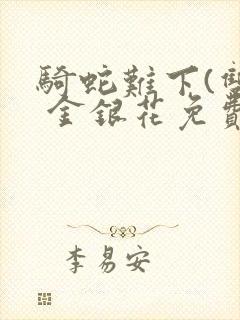 騎蛇難下(雙
金銀花免費
李易安